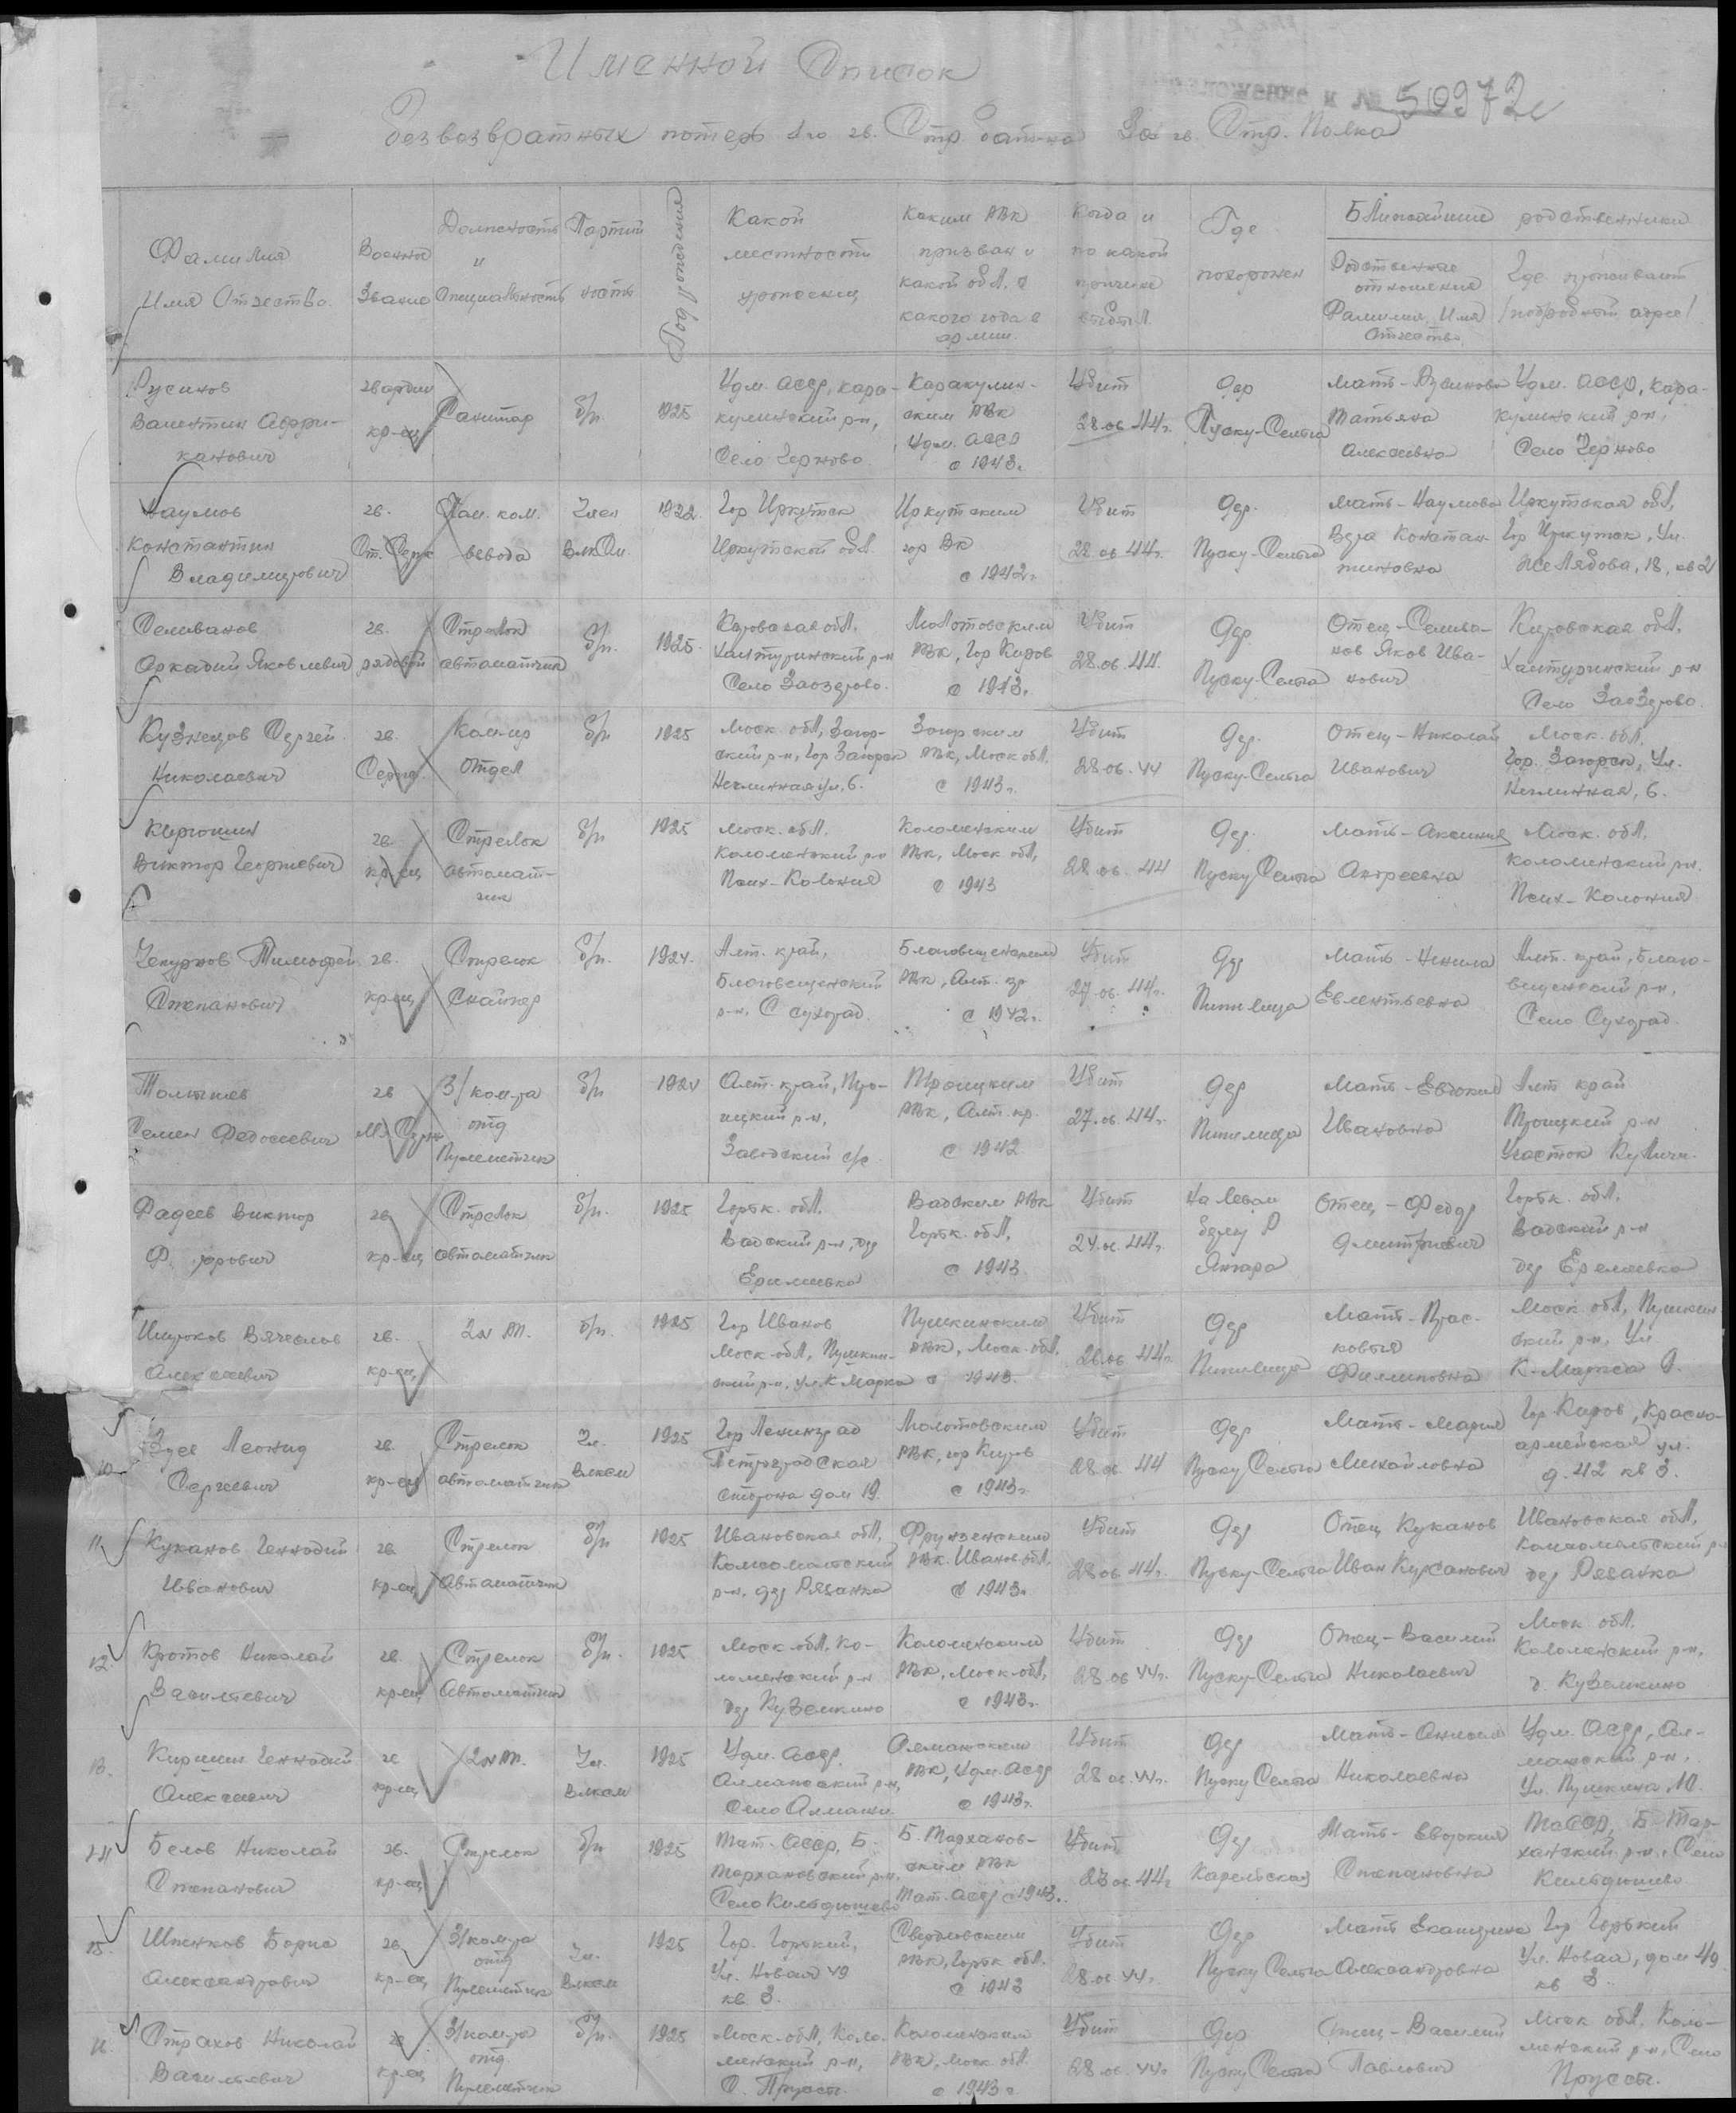 Именной Список
Приложение к № 50972с
безвозвратных потерь 1го гв. Стр батал-на гв. Стр. Полка
Фамилия
Имя Отчество.
Военное
Звание
Должность
и
Специальность
Партий
ность
Год рождения
Какой
местности
уроженец
Каким РВК
призван и
какой обл. с
какого года в
армии.
Когда и
по какой
причине
выбыл.
Где
похоронен
Ближайшие родственники
Родственные
отношения
Фамилия, Имя
Отчество
Где проживают
/подробный адрес/
Русинов
Валентин Аффри-
канович
гвардии
кр-ец
Санитар
б/п.
1925
Удм. АССР, Кара-
кулинский р-н,
Село Черново
Каракулин-
ским РВК
Удм. АССР
с 1943г.
Убит
28.06.44г.
Дер
Пуску-Сельга
Мать-Русинова
Татьяна
Алексеевна
Удм. АССР, Кара-
кулинский р-н,
Село Черново
Наумов
Константин
Владимирович
гв.
Ст. Серж
Пом. ком.
взвода
Член
ВЛКСМ.
1922.
Гор Иркутск
Иркутской обл.
Иркутским
гор ВК
с 1942г.
Убит
28.06.44г.
Дер.
Пуску-Сельга
Мать-Наумова
Вера Констан-
тиновна
Иркутская обл,
Гор Иркутск, Ул.
Желябова, 18, кв 2
Селиванов
Аркадий Яковлевич
гв.
рядовой
Стрелок
автоматчик
б/п.
1925.
Кировская обл.
Халтуринский р-н
Село Заозерово.
Молотовским
РВК, Гор Киров
с 1943г.
Убит
28.06.44.
Дер
Пуску-Сельга
Отец-Селива-
нов Яков Ива-
нович
Кировская обл.
Халтуринский р-н
Село Заозерово.
Кузнецов Сергей
Николаевич
гв.
Серж.
Ком-ир
отдел
б/п
1925
Моск. обл, Загор-
ский р-н, Гор Загорск
Неглинная ул, 6.
Загорским
РВК, Моск обл.
с 1943г.
Убит
28.06.44
Дер.
Пуску-Сельга
Отец-Николай
Иванович
Моск. обл.
Гор. Загорск, Ул.
Неглинная, 6.
Виктор Георгиевич
гв.
кр-ец
Стрелок
автомат-
чик
б/п
1925
Моск. обл.
Коломенский р-н
Псих-Колония
Коломенским
РВК, Моск обл,
с 1943
Убит
28.06.44
Дер.
Пуску Сельга
Мать-Аксиния
Андреевна
Моск. обл.
Коломенский р-н.
Псих-Колония
Чекурков Тимофей
Степанович
гв.
кр-ец
Стрелок
Снайпер
б/п.
1924.
Алт. край,
Благовещенский
р-н, С Сухорад.
Благовещенским
РВК, Алт. кр
с 1942г.
Убит
27.06.44г.
Дер
Пинилица
Мать-Ненила
Евлентьевна
Алт. край, Благо-
вещенский р-н,
Село Сухорад.
Семен Федосеевич
гв
мл. Серж
З/ком-ра
отд
Пулеметчик
б/п
1924
Алт. край, Тро-
ицкий р-н,
Заводский с/с
Троицким
РВК, Алт. кр.
с 1942
Убит
27.06.44г.
Дер
Пинилица
Мать-Евдокия
Ивановна
Алт край
Троицкий р-н
Участок
Фадеев Виктор
Ф. дорович
гв
кр-ец
Стрелок
автоматчик
б/п.
1925
Горьк. обл.
Вадский р-н, дер
Еримеевка
Вадским РВК
Горьк. обл,
с 1943
Убит
24.06.44г.
На Левом
берегу Р
Янгара
Отец-Федор
Дмитриевич
Горьк. обл.
Вадский р-н
дер Еремеевка
Широков Вячеслав
Алексеевич
гв.
кр-ец
б/п.
1925
Гор Иванов
Моск-обл, Пушкин-
ский р-н, ул.К-Маркса
Пушкинским
РВК, Моск-обл.
с 1943.
Убит
26.06.44г.
Дер
Пинилица
Мать-Прас-
ковья
Филиповна
Моск. обл, Пушкин-
ский р-н, Ул
К-Маркса 9.
10
Зуев Леонид
Сергеевич
гв.
кр-ец
Стрелок
автоматчик
Чл.
ВЛКСМ
1925
Гор Ленинград
Петроградская
сторона дом 19.
Молотовским
РВК, гор Киров
с 1943г.
Убит
28.06.44
Дер
Пуску Сельга
Мать-Мария
Михайловна
Гор Киров, Красно-
армейская ул.
д. 42 кв 3.
11
Куканов Геннадий
Иванович
гв.
кр-ец
Стрелок
Автоматчик
б/п
1925
Ивановская обл,
Комсомольский
р-н, дер Рязанка
Фрунзенским
РВК. Иванов.обл.
с 1943г.
Убит
28.06.44г.
Дер
Пуску-Сельга
Отец Куканов
Иван
Ивановская обл,
Комсомольский р-н
дер Рязанка
12.
Кротов Николай
Васильевич
гв.
кр-ец
Стрелок
Автоматчик
б/п.
1925
Моск-обл. Ко-
ломенский р-н
дер Куземкино
Коломенским
РВК, Моск-обл,
с 1943г.
Убит
28.06.44г.
Дер
Пуску-Сельга
Отец-Василий
Николаевич
Моск обл.
Коломенский р-н,
д. Куземкино
13.
Киршин Геннадий
Алексеевич
гв
кр-ец
Чл.
ВЛКСМ
1925
Удм. АССР.
Алмашский р-н,
Село Алмаши.
Алмашским
РВК, Удм. АССР
с 1943г.
Убит
28.06.44г.
Дер
Пуску Сельга
Мать-
Николаевна
Удм. АССР, Ал-
машский р-н,
Ул. Пушкина, 10.
14
Белов Николай
Степанович
гв.
кр-ец
Стрелок
б/п
1925
Тат. АССР, Б.
Тархановский р-н,
Село Кильдюшево
Б. Тарханов-
ским РВК
Тат. АССР с 1943г.
Убит
23.06.44г
Дер
Карельская
Мать-Евдокия
Степановна
ТаССР, Б-Тар-
ханский р-н, Село
Кильдюшево
15.
Шпенков Борис
Александрович
гв
кр-ец
З/ком-ра
отд
Пулеметчик
Чл.
ВЛКСМ
1925
Гор. Горький,
Ул. Новая 49
кв 3.
Свердловским
РВК, Горьк обл.
с 1943
Убит
28.06.44г.
Дер
Пуску Сельга
Мать Екатерина
Александровна
Гор Горький
Ул. Новая, дом 49.
кв 3.
16.
Страхов Николай
Васильевич
гв
кр-ец
З/ком-ра
отд
Пулеметчик
б/п.
1925
Моск-обл, Коло-
менский р-н,
С. Пруссы.
Коломенским
РВК, Моск обл.
с 1943г
Убит
28.06.44г
Дер
Пуску Сельга
Отец-Василий
Павлович
Моск обл, Коло-
менский р-н, Село
Пруссы.